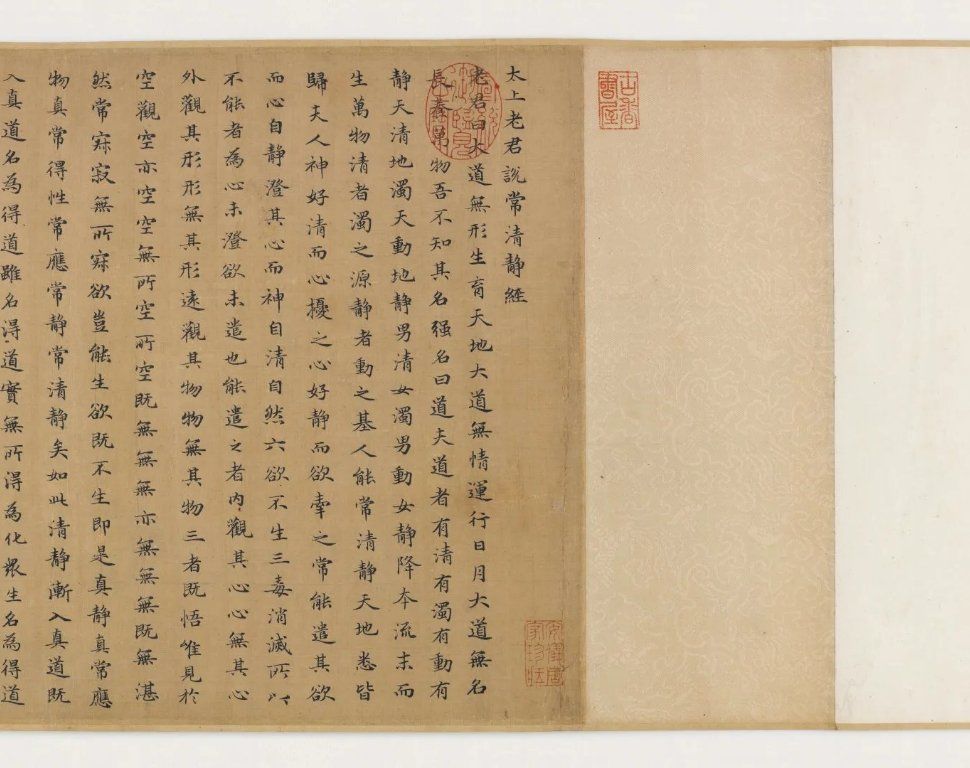 太上老君說常清静經
老君曰大道無形生育天地大道無情運行日月大道無名
長養萬物吾不知其名强名曰道夫道者有清有濁有動有
静天清地濁天動地静男清女濁男動女静降本流末而
生萬物清者濁之源静者動之基人能常清静天地悉皆
歸夫人神好清而心擾之心好静而欲牽之常能遣其欲
而心自静澄其心而神自清自然六欲不生三毒消滅所以
不能者為心未澄欲未遣也能遣之者内觀其心心無其心
外觀其形形無其形遠觀其物物無其物三者既悟唯見於
空觀空亦空空無所空所空既無無無亦無無無既無湛
然常寂寂無所寂欲豈能生欲既不生即是真静真常應
物真常得性常應常静常清静矣如此清静漸入真道既
入真道名為得道雖名得道實無所得為化衆生名為得道
安儀周家珍藏